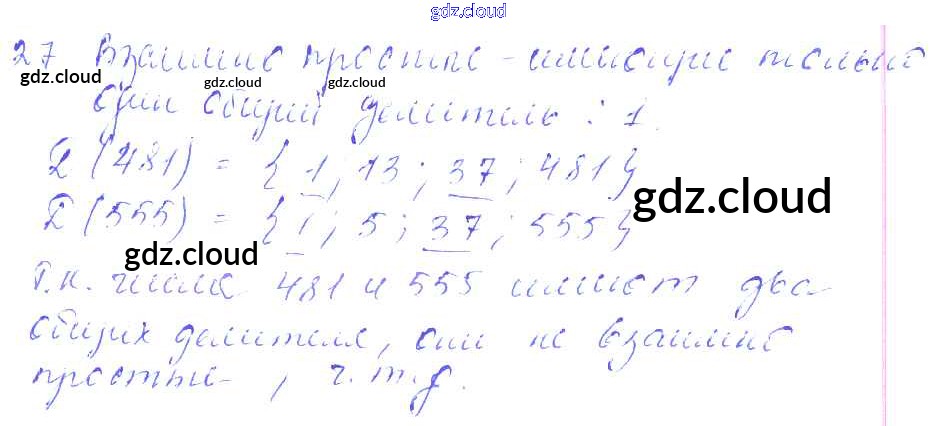 gdz.cloud
27 Взаимно простые - имеющие только
gdz.cloud gdz.cloud gdz.cloud
один общий делитель : 1.
D (481) = { 1 ; 13 ; 37 ; 481 }
gdz.cloud
D (555) = { 1 ; 5 ; 37 ; 555 }
gdz.cloud
Т.к. числа 481 и 555 имеют два
общих делителя, они не взаимно
простые , ч.т.д.